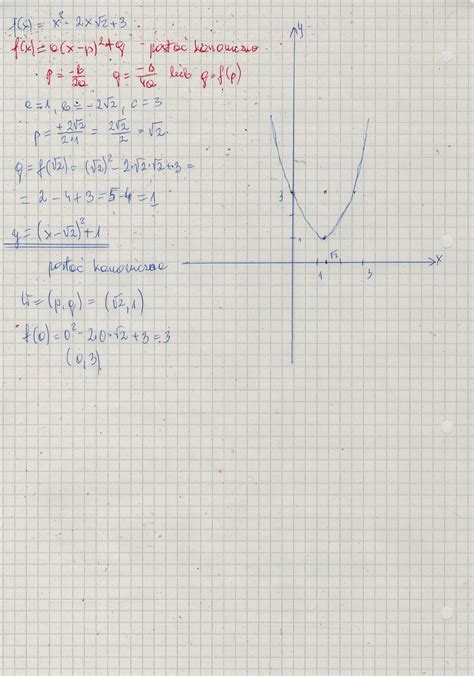 f(x) = x² - 2x√2 + 3
f(x) = a(x-p)² + q - postać kanoniczna
p = -b/2a   q = -Δ/4a lub q = f(p)
a=1, b = -2√2, c = 3
p = +2√2/2·1 = 2√2/2 = √2.
q = f(√2) = (√2)² - 2·√2·√2 + 3 =
= 2 - 4 + 3 = 5-4 = 1
y = (x-√2)² + 1
postać kanoniczna
W = (p,q) = (√2, 1)
f(0) = 0² - 2·0·√2 + 3 = 3
(0,3)
y
3
1
√2
x
1
3